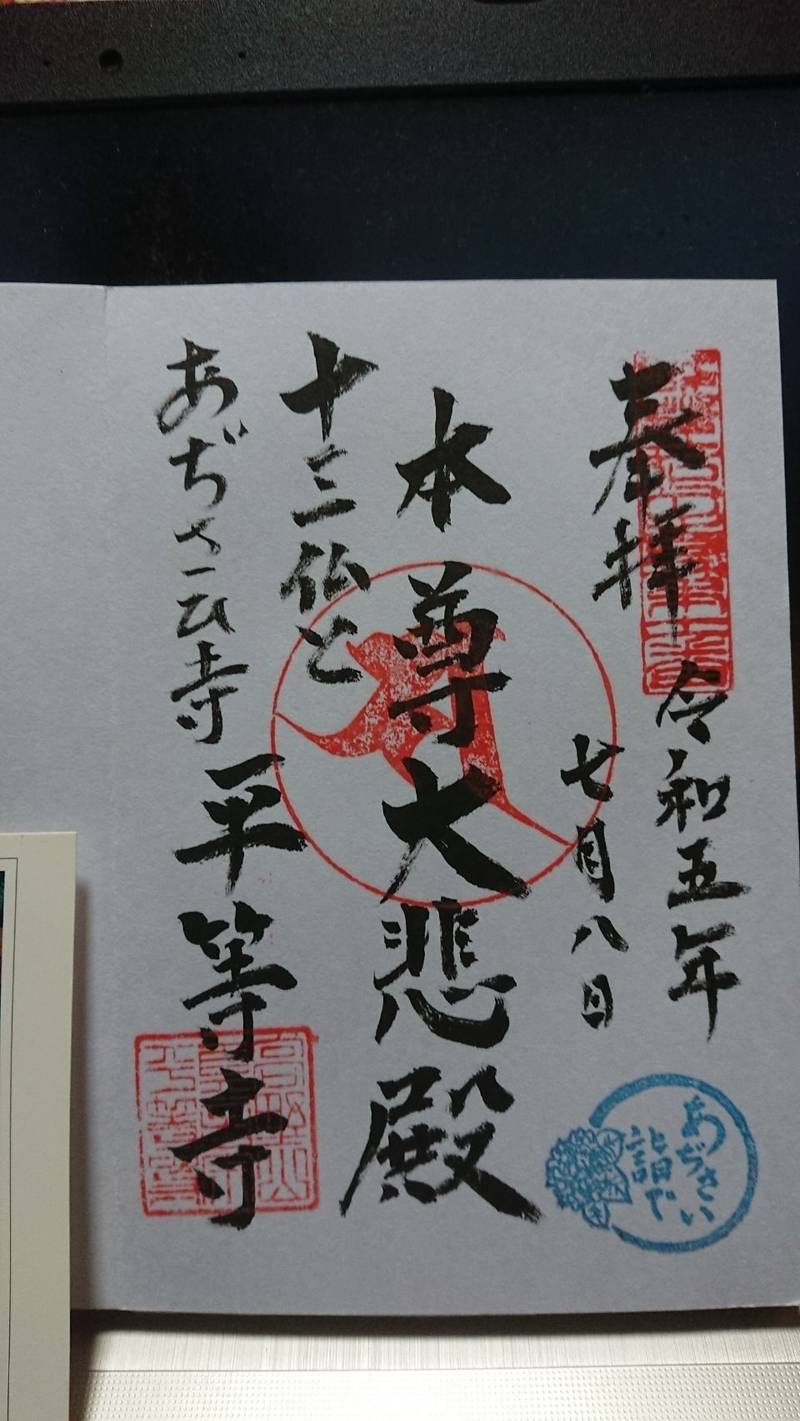 奉拝
令和五年
七月八日
本尊大悲殿
十三仏と
あぢさゐ寺
平等寺
あぢさい
詣で